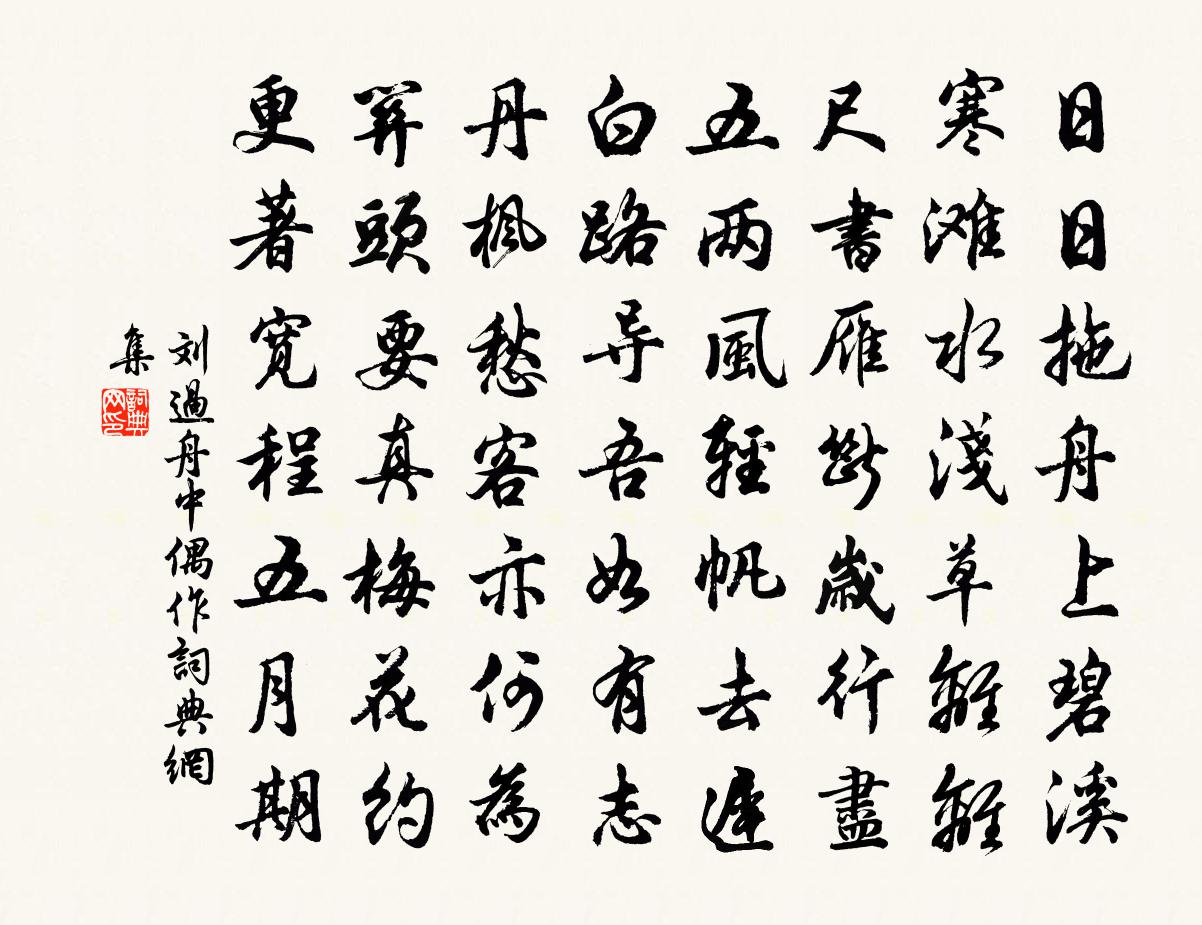 日日拖舟上碧溪
寒滩水淺草離離
尺書雁斷歲行盡
五两風輕帆去遲
白路导吾如有志
丹楓愁客亦何為
頭要真梅花約
更著寬程五月期
刘過舟中偶作詞典網
集
詞典网印